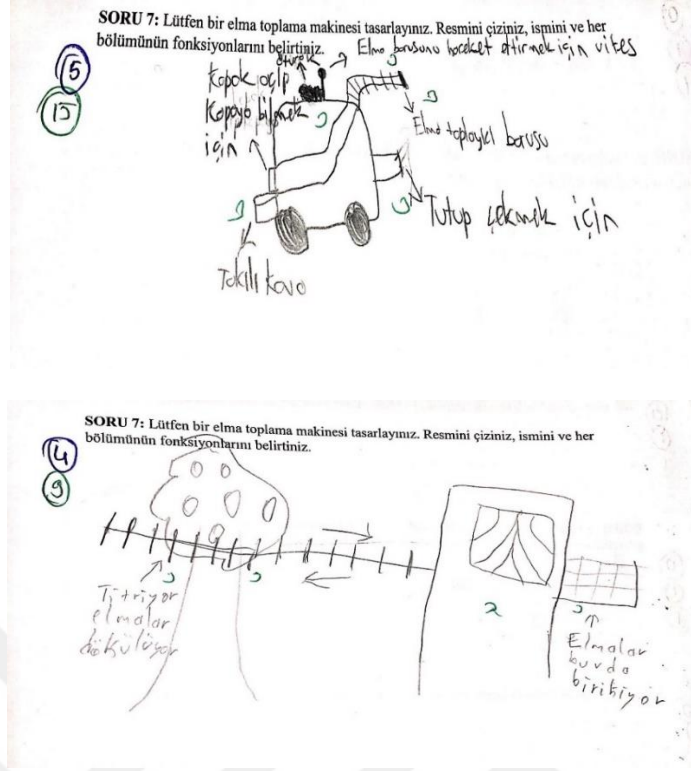 SORU 7: Lütfen bir elma toplama makinesi tasarlayınız. Resmini çiziniz, ismini ve her
bölümünün fonksiyonlarını belirtiniz.
Elma borusunu hareket ettirmek için vites
oturak
Kapak açıp
Kapayabilmek
için
Elma toplayıcı borusu
Tutup çekmek için
Takılı kova
5
15
3
3
3
3
3
SORU 7: Lütfen bir elma toplama makinesi tasarlayınız. Resmini çiziniz, ismini ve her
bölümünün fonksiyonlarını belirtiniz.
4
9
Titriyor
elmalar
dökülüyor
3
2
Elmalar
burda
birikiyor